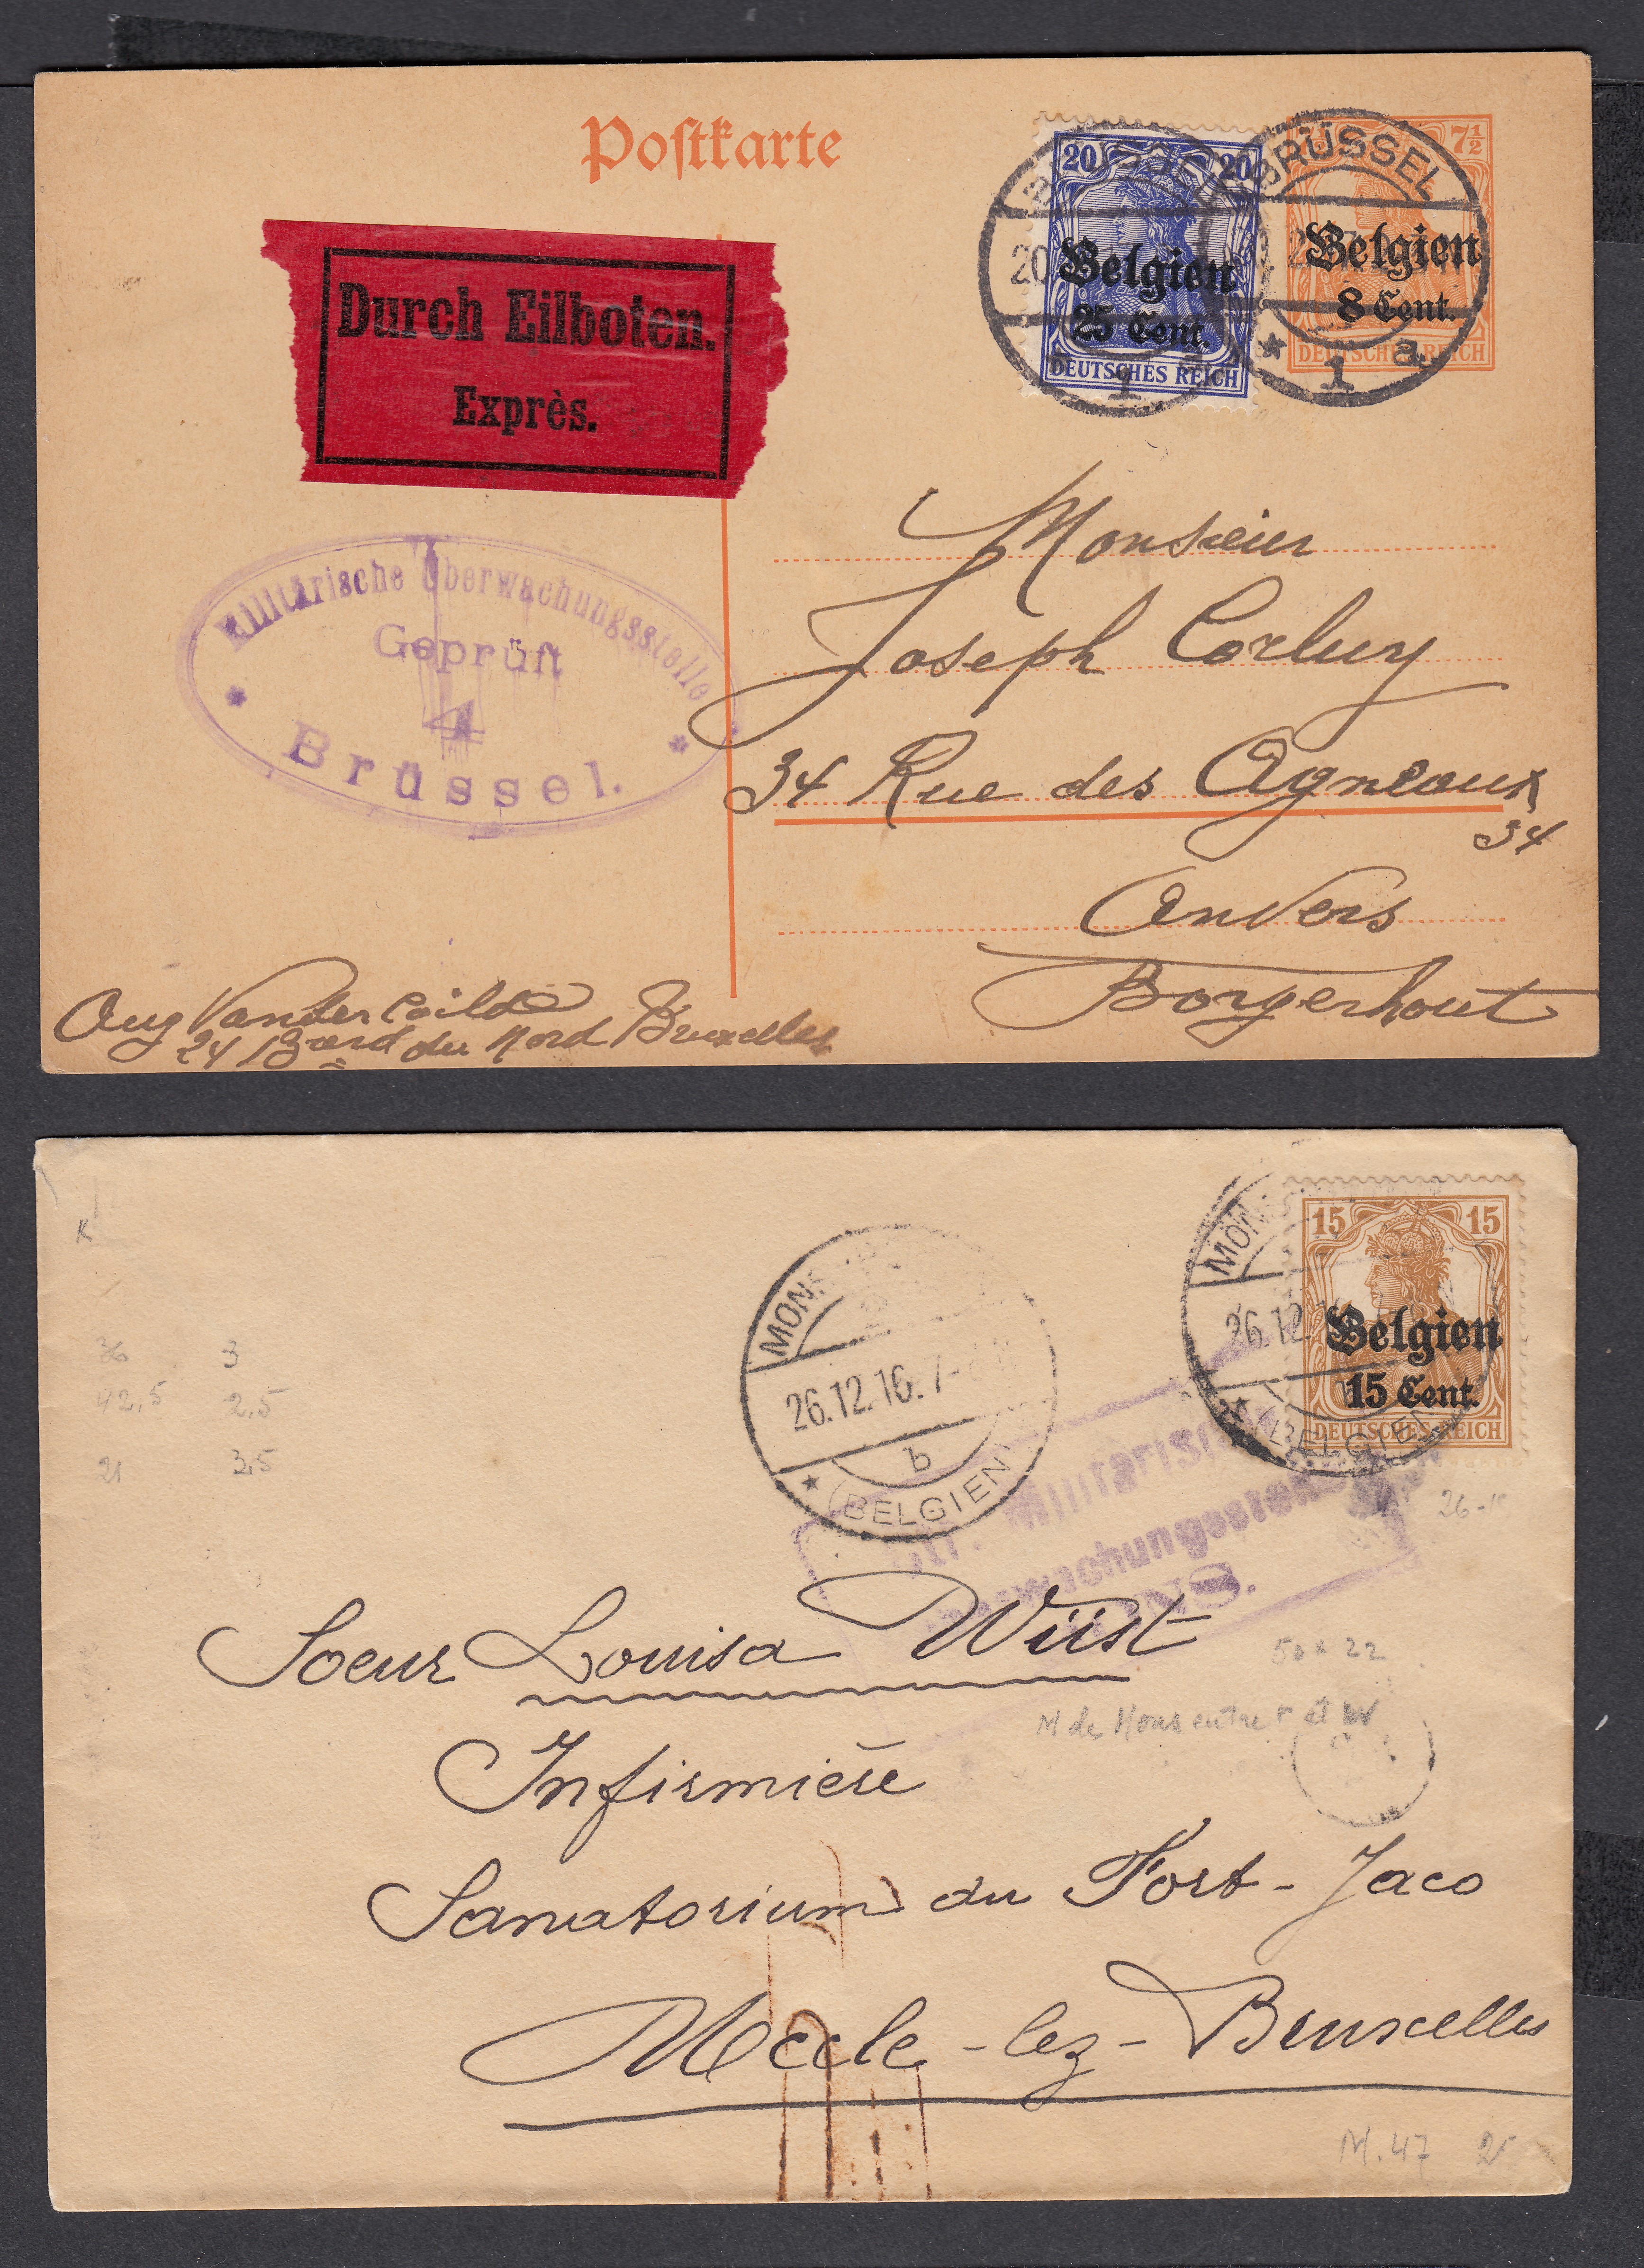 Postkarte
20 20
Belgien
25 Cent.
DEUTSCHES REICH
7½
BRÜSSEL
Belgien
8 Cent.
DEUTSCHES REICH
* 1 a
20
1
Durch Eilboten.
Exprès.
Militärische Überwachungsstelle
Geprüft
4
Brüssel.
Monsieur
Joseph Corluy
34 Rue des Agneaux
34
Anvers
Borgerhout
Aug
24 Bard du Nord Bruxelles
15 15
Belgien
15 Cent.
DEUTSCHES REICH
26.12.
(BELGIEN
26.12.16. 7-
b
(BELGIEN)
K
36 3
42,5 2,5
21 3,5
26-
Soeur Louisa Wüst
50 x 22
M de Mons entre r et w
Infirmière
Sanatorium du Fort-Jaco
-lez-Bruxelles
M.47